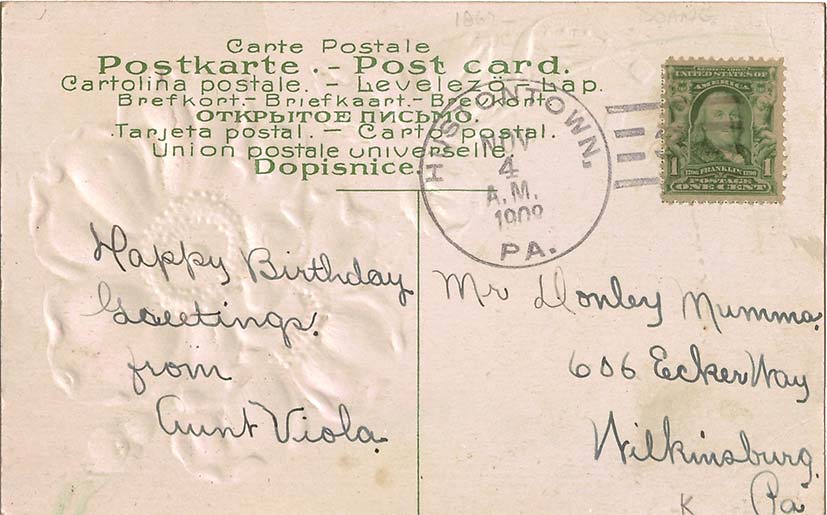 Carte Postale
Postkarte. - Post card.
Cartolina postale. - Levelező - Lap.
Brefkort.- Briefkaart.- Brevkort
ОТКРЫТОЕ ПИСЬМО.
Tarjeta postal. - Carto postal.
Union postale universelle.
Dopisnice.
HUSTONTOWN,
NOV
4
A.M.
1908
PA.
SERIES 1902
UNITED STATES OF
AMERICA
1706 FRANKLIN 1790
1 1
POSTAGE
ONE CENT
Happy Birthday
Greetings!
from
Aunt Viola.
Mr Donley Mumma
606 Ecker Way
Wilkinsburg
Pa
K